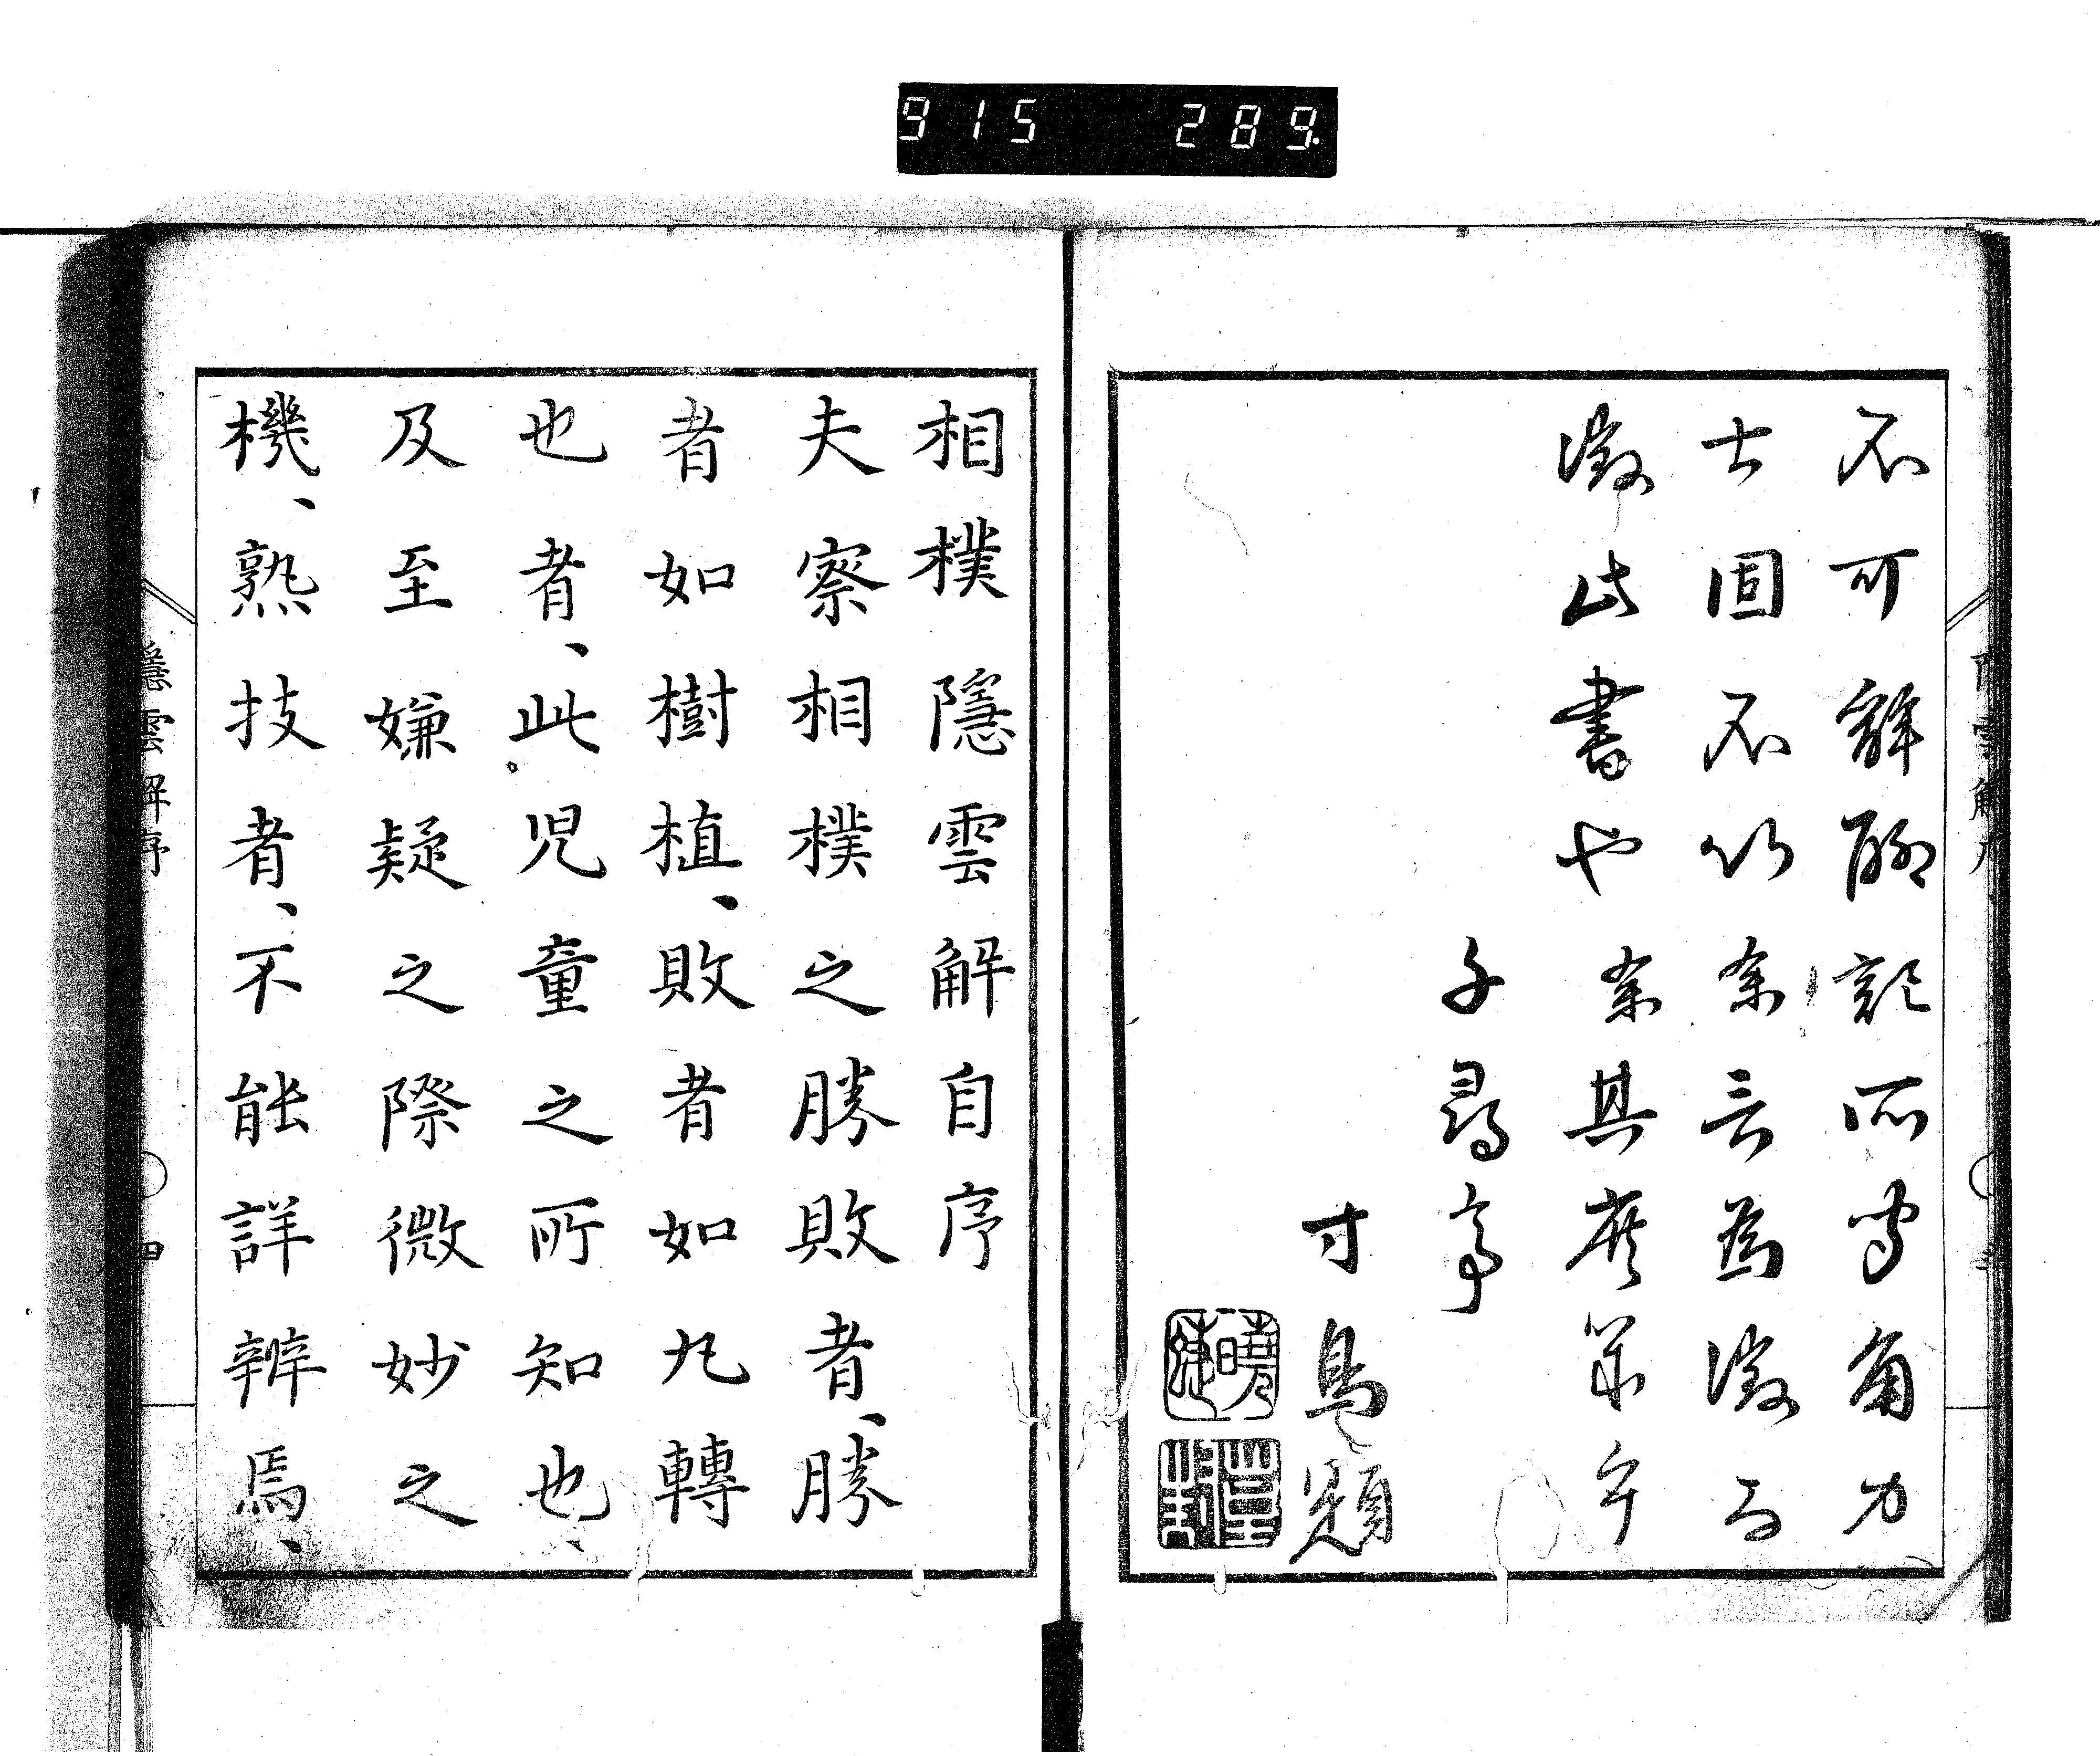 915 289.
不可辭聊記所守角力
士固不以余言為徵而
徵此書也余其庶幾乎
千尋亭
寸島題
相樸隱雲解自序
夫察相樸之勝敗者、勝
者如樹植、敗者如丸轉
也者、此児童之所知也、
及至嫌疑之際微妙之
機、熟技者、不能詳辨焉、
隱雲解序
四